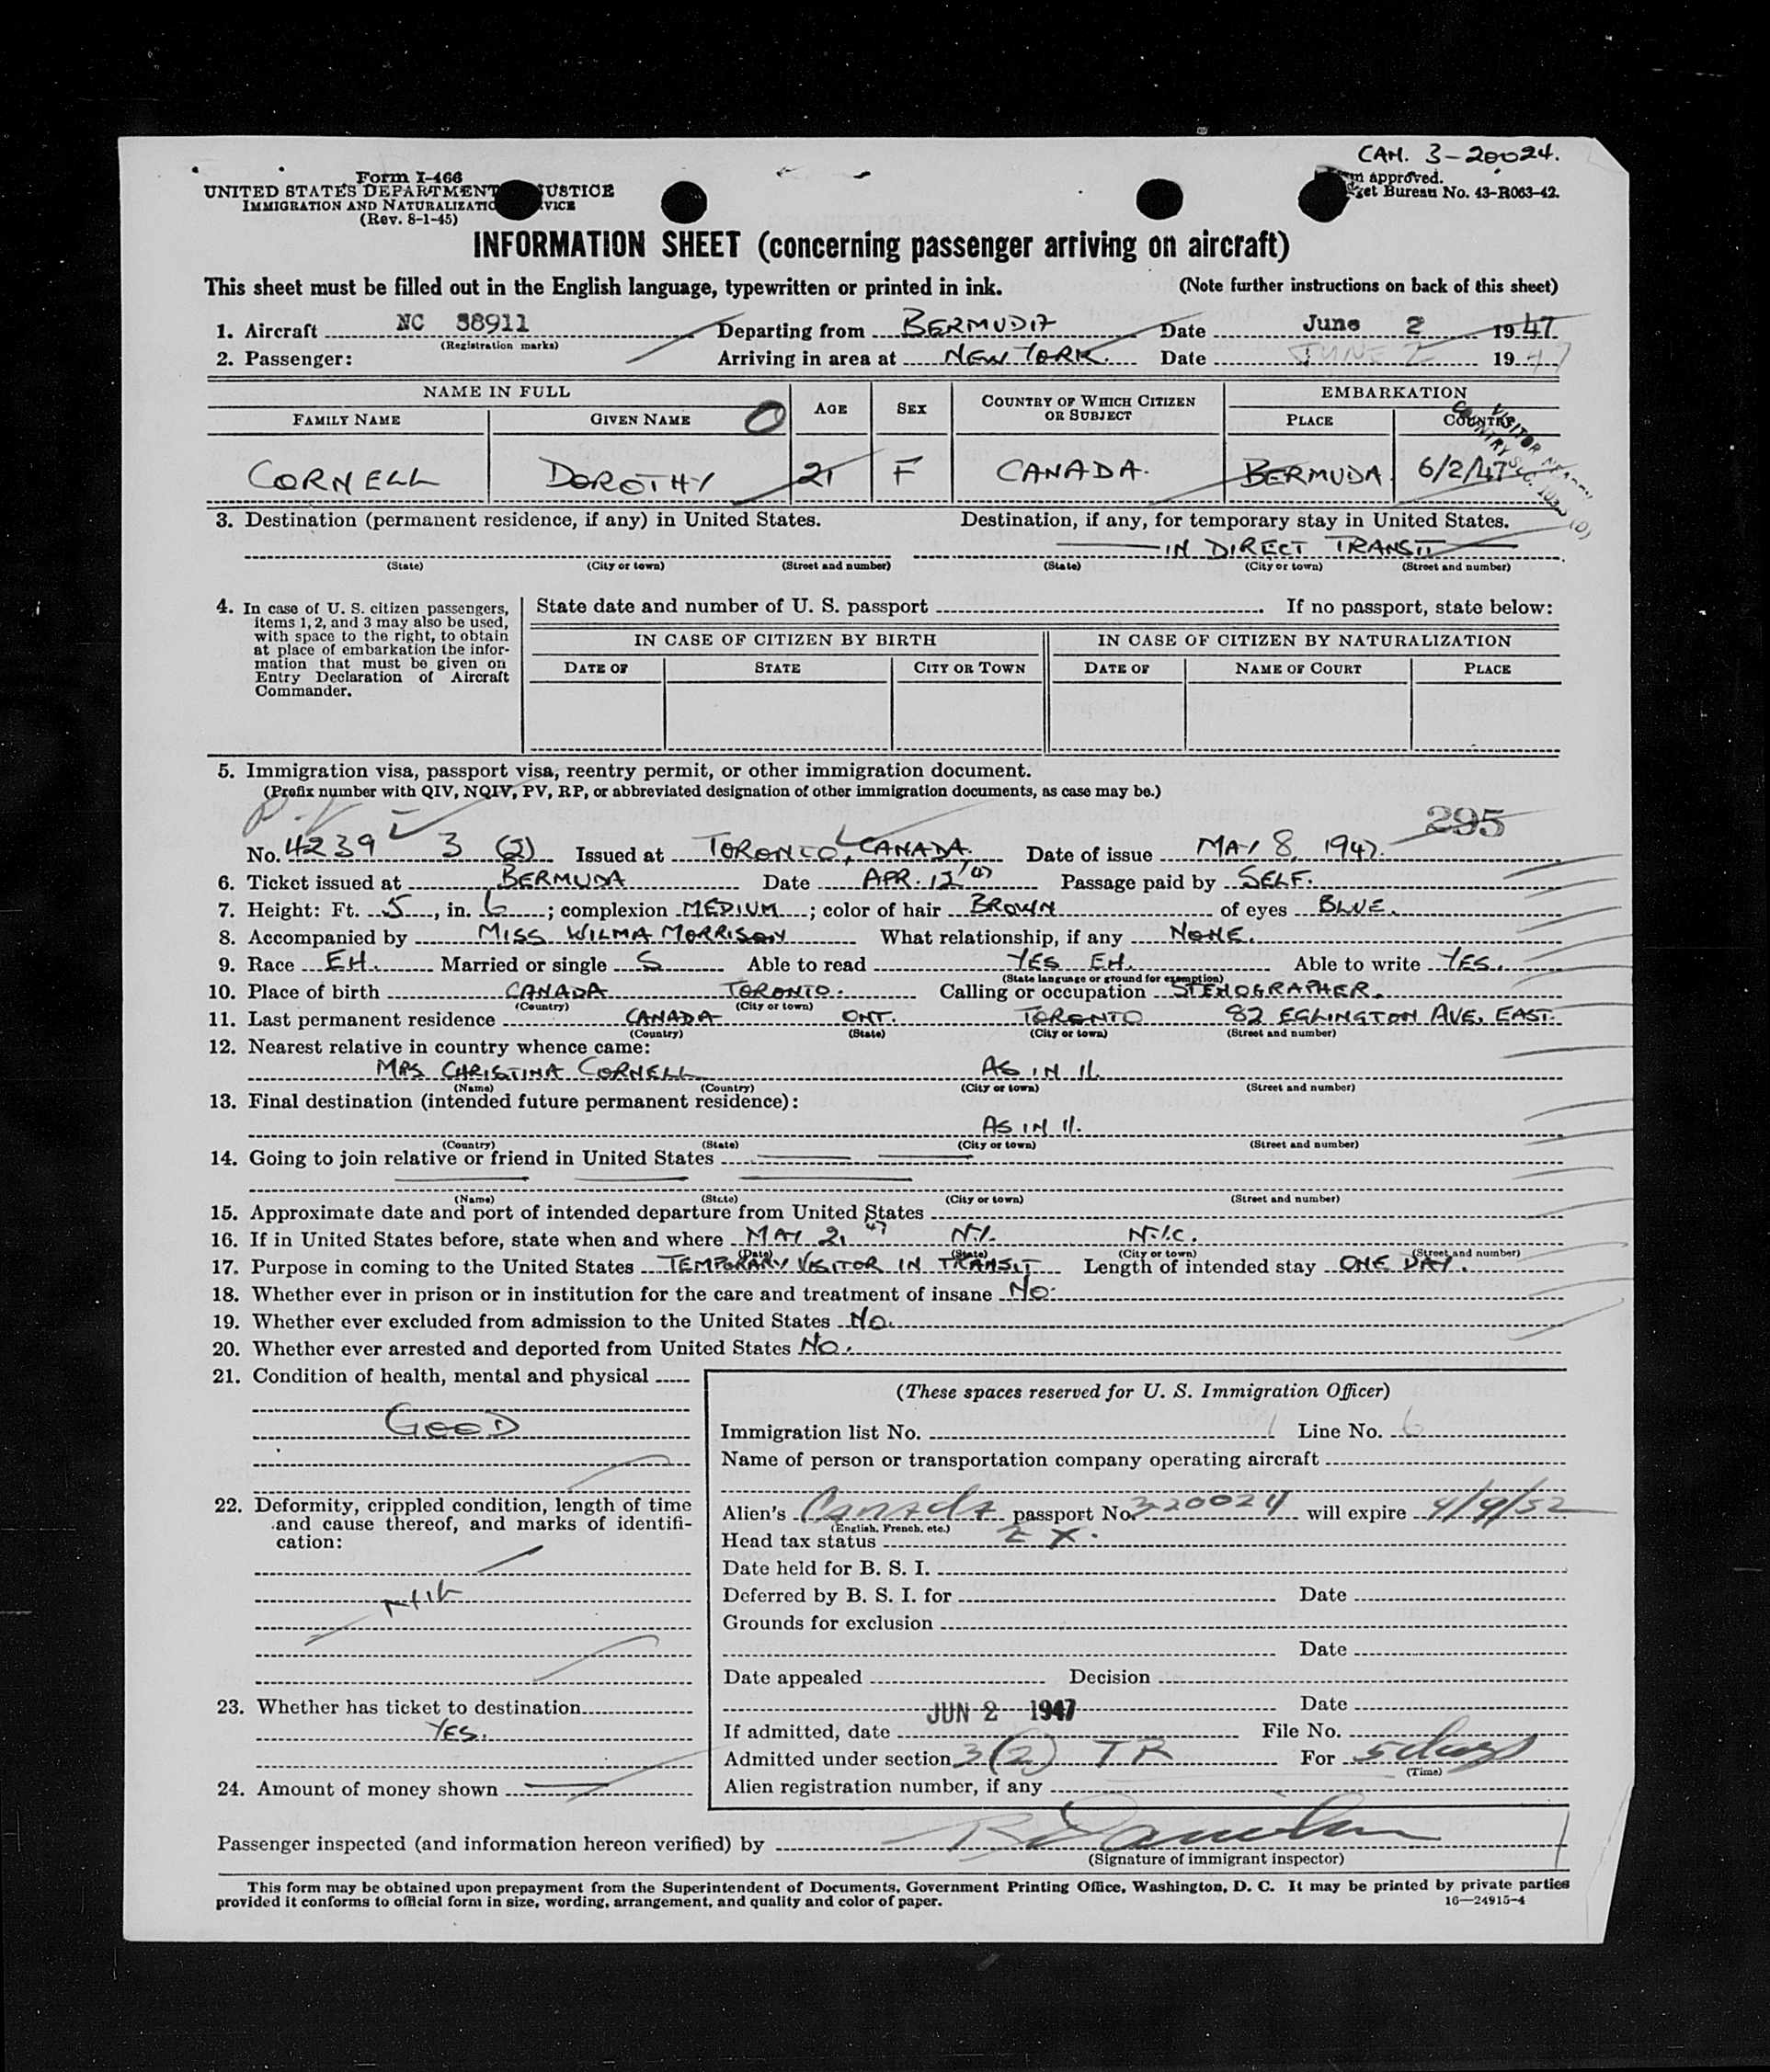 CAN. 3-20024.
Form I-466
UNITED STATES DEPARTMENT JUSTICE
IMMIGRATION AND NATURALIZATIO VICE
(Rev. 8-1-45)
m approved.
get Bureau No. 43-R063-42.
INFORMATION SHEET (concerning passenger arriving on aircraft)
This sheet must be filled out in the English language, typewritten or printed in ink. (Note further instructions on back of this sheet)
1. Aircraft NC 38911 Departing from BERMUDA Date June 2 1947
(Registration marks)
2. Passenger: Arriving in area at NEW YORK. Date JUNE 2 1947
NAME IN FULL AGE SEX COUNTRY OF WHICH CITIZEN OR SUBJECT EMBARKATION
FAMILY NAME GIVEN NAME O PLACE COUNTRY
VISITOR
CORNELL DOROTHY 21 F CANADA. BERMUDA 6/2/47
3. Destination (permanent residence, if any) in United States. Destination, if any, for temporary stay in United States.
IN DIRECT TRANSIT
(State) (City or town) (Street and number) (State) (City or town) (Street and number)
4. In case of U. S. citizen passengers, items 1, 2, and 3 may also be used, with space to the right, to obtain at place of embarkation the information that must be given on Entry Declaration of Aircraft Commander.
State date and number of U. S. passport . If no passport, state below:
IN CASE OF CITIZEN BY BIRTH IN CASE OF CITIZEN BY NATURALIZATION
DATE OF STATE CITY OR TOWN DATE OF NAME OF COURT PLACE
5. Immigration visa, passport visa, reentry permit, or other immigration document.
(Prefix number with QIV, NQIV, PV, RP, or abbreviated designation of other immigration documents, as case may be.)
295
No. 4239 3 (2) Issued at TORONTO, CANADA. Date of issue MAY 8, 1947.
6. Ticket issued at BERMUDA Date APR. 12/47 Passage paid by SELF.
7. Height: Ft. 5, in. 6; complexion MEDIUM; color of hair BROWN of eyes BLUE.
8. Accompanied by MISS WILMA MORRISON What relationship, if any NONE.
9. Race EH. Married or single S Able to read YES EH. Able to write YES.
(State language or ground for exemption)
10. Place of birth CANADA TORONTO. Calling or occupation STENOGRAPHER.
(Country) (City or town)
11. Last permanent residence CANADA ONT. TORONTO 82 EGLINGTON AVE. EAST.
(Country) (State) (City or town) (Street and number)
12. Nearest relative in country whence came:
MRS CHRISTINA CORNELL AS IN 11.
(Name) (Country) (City or town) (Street and number)
13. Final destination (intended future permanent residence):
AS IN 11.
(Country) (State) (City or town) (Street and number)
14. Going to join relative or friend in United States
(Name) (State) (City or town) (Street and number)
15. Approximate date and port of intended departure from United States
16. If in United States before, state when and where MAY 2, 47 N.Y. N.Y.C.
(Date) (State) (City or town) (Street and number)
17. Purpose in coming to the United States TEMPORARY VISITOR IN TRANSIT Length of intended stay ONE DAY.
18. Whether ever in prison or in institution for the care and treatment of insane NO.
19. Whether ever excluded from admission to the United States NO.
20. Whether ever arrested and deported from United States NO.
21. Condition of health, mental and physical
GOOD
22. Deformity, crippled condition, length of time and cause thereof, and marks of identification:
NIL
23. Whether has ticket to destination
YES.
24. Amount of money shown
(These spaces reserved for U. S. Immigration Officer)
Immigration list No. 1 Line No. 6
Name of person or transportation company operating aircraft
Alien's Canada passport No. 320024 will expire 4/9/52
(English, French, etc.)
Head tax status EX.
Date held for B. S. I.
Deferred by B. S. I. for Date
Grounds for exclusion
Date
Date appealed Decision
Date
JUN 2 1947
If admitted, date File No.
Admitted under section 3(2) TR For 5 days
(Time)
Alien registration number, if any
Passenger inspected (and information hereon verified) by
(Signature of immigrant inspector)
This form may be obtained upon prepayment from the Superintendent of Documents, Government Printing Office, Washington, D. C. It may be printed by private parties
provided it conforms to official form in size, wording, arrangement, and quality and color of paper. 16—24915-4